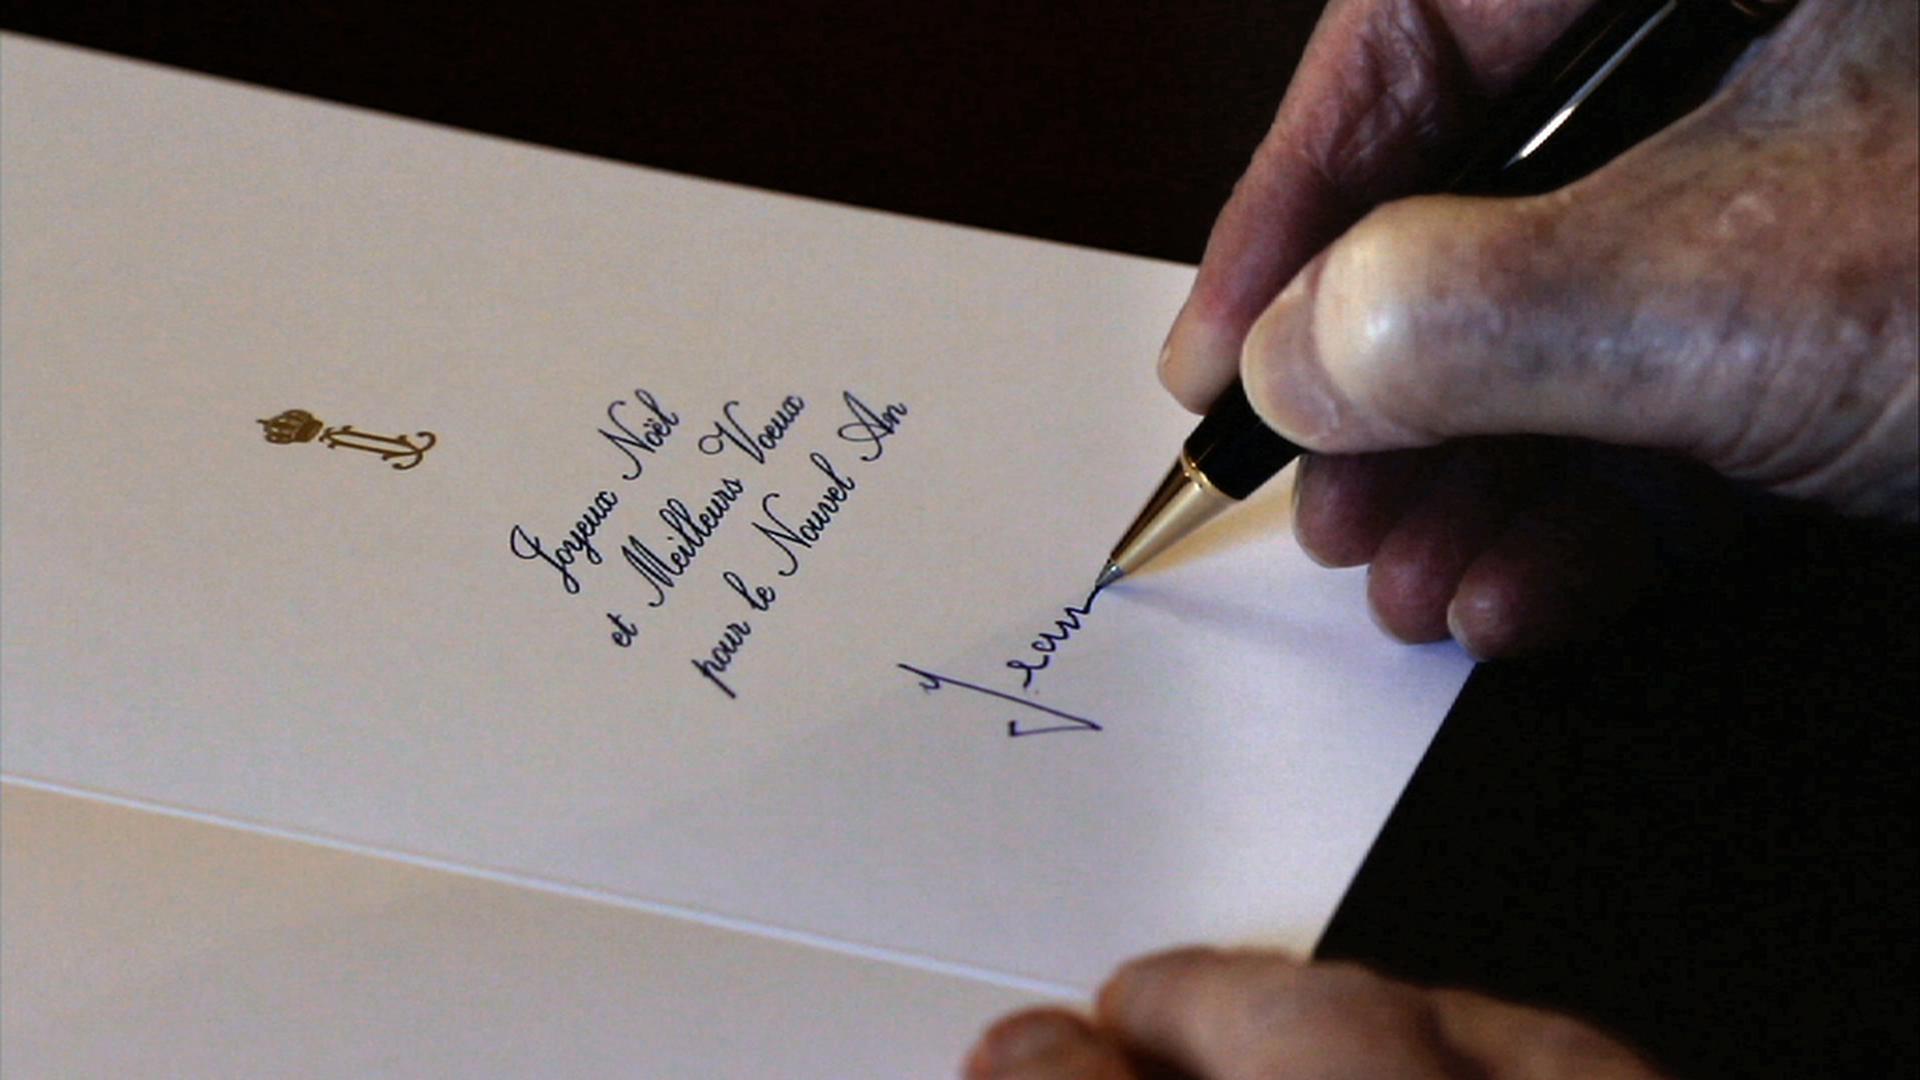 Joyeux Noël
et Meilleurs Voeux
pour le Nouvel An
Jean